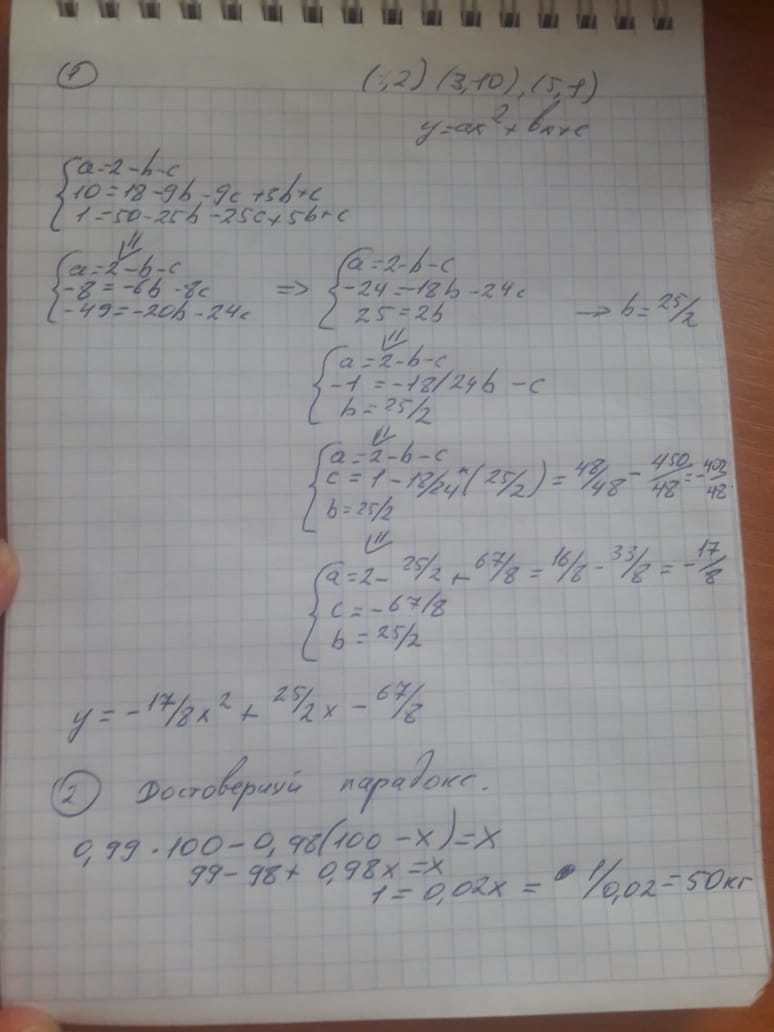 ① (1,2) (3,10), (5,1)
y=ax²+bx+c
{ a=2-b-c
10=18-9b-9c+3b+c
1=50-25b-25c+5b+c
⇓
{ a=2-b-c
-8=-6b-8c
-49=-20b-24c
=> { a=2-b-c
-24=-18b-24c
25=2b
→ b=25/2
⇓
{ a=2-b-c
-1=-18/24b-c
b=25/2
⇓
{ a=2-b-c
c=1-18/24*(25/2)=48/48-450/48=-402/48.
b=25/2
⇓
{ a=2-25/2+67/8=16/8-33/8=-17/8
c=-67/8
b=25/2
y=-17/8x²+25/2x-67/8
② Достоверный парадокс.
0,99·100-0,98(100-x)=x
99-98+0,98x=x
1=0,02x= 1/0,02=50кг